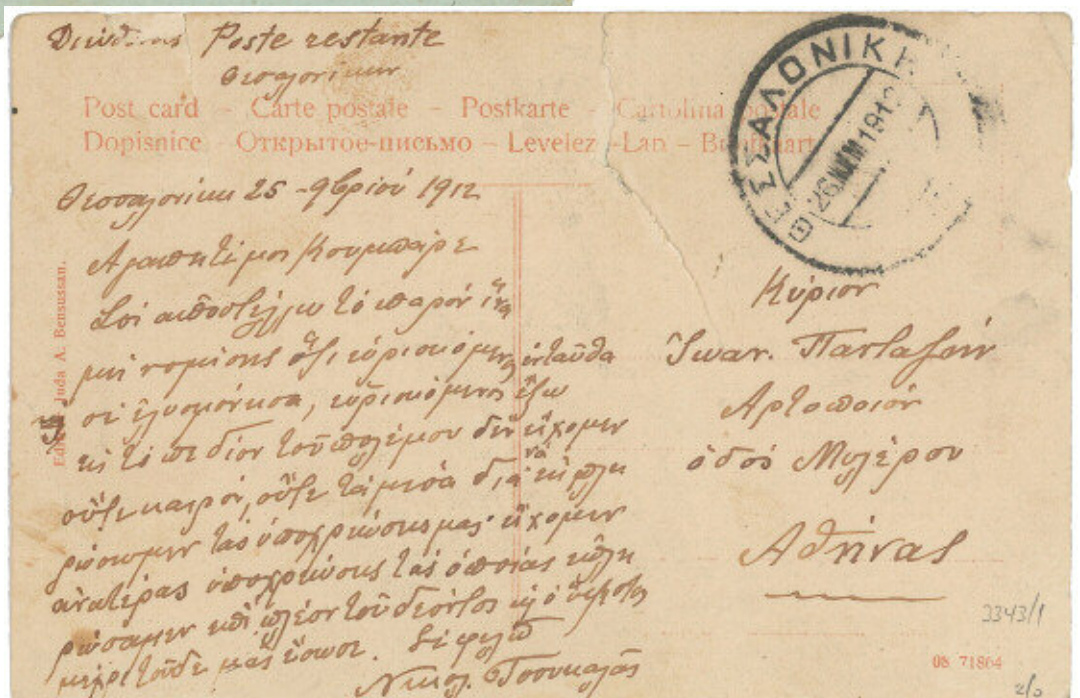 Διεύθυνσις Poste restante
Θεσσαλονίκην
Post card – Carte postale – Postkarte – Cartolina postale
Dopisnice – Открытое-письмо – Levelez-Lap – Briefkaart
ΘΕΣΣΑΛΟΝΙΚΗ
26 ΝΟΕΜ 1912
Θεσσαλονίκη 25 - 9βρίου 1912
Αγαπητέ μοι Κουμπάρε
Σοί αποστέλλω τό παρόν ἵνα
μή νομίσης ὅτι εὑρισκόμενος ἐνταῦθα
σέ ἐλησμόνησα, εὑρισκόμενος ἔξω
εἰς τό πεδίον τοῦ πολέμου δέν εἴχομεν
οὔτε καιρόν, οὔτε τά μέσα διά νά ἐκπλη
ρώσωμεν τάς ὑποχρεώσεις μας· εἴχομεν
ἀνωτέρας ὑποχρεώσεις τάς ὁποίας ἐπλη
ρώσαμεν καί πλέον τοῦ δέοντος κ ὁ ὕψιστος
μέχρι τοῦδε μᾶς ἔσωσε. Σέ φιλῶ
Νικολ. Τσουκαλᾶς
Κύριον
Ἰωαν. Πανταζήν
Αρτοποιόν
ὁδός Μυλέρου
Αθήνας
Juda A. Bensussan.
3343/1
08 71804
2/3